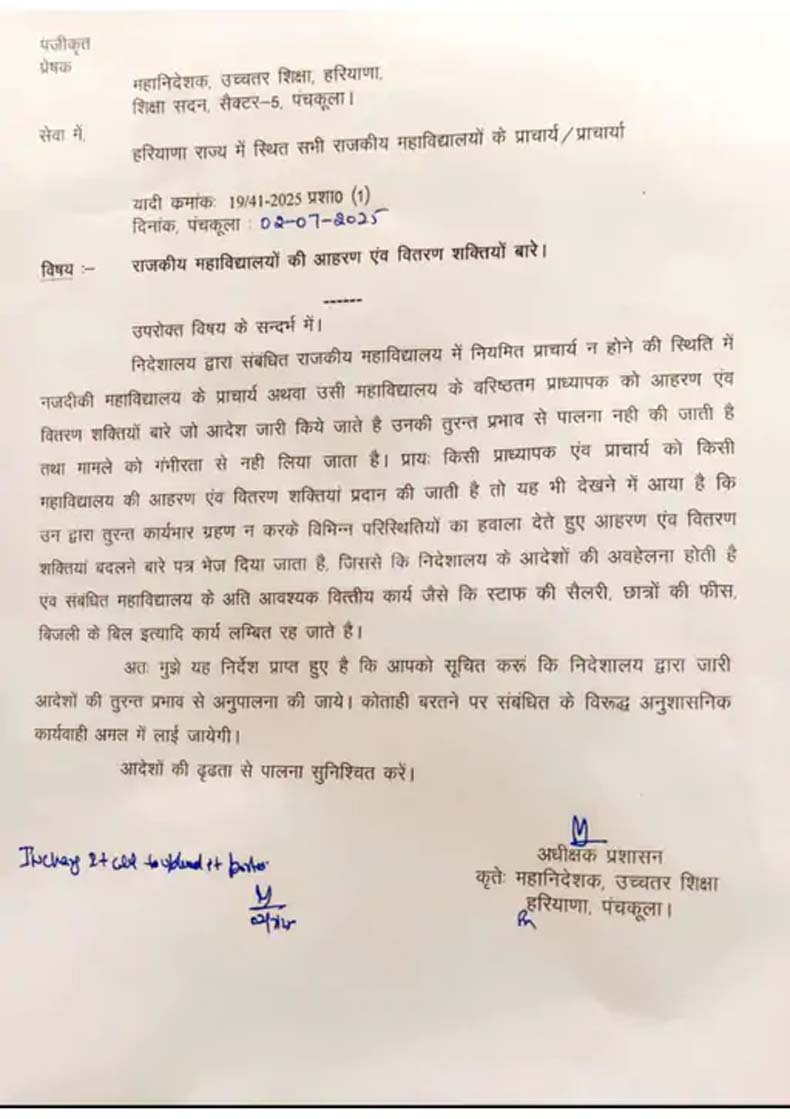 पंजीकृत
प्रेषक
महानिदेशक, उच्चतर शिक्षा, हरियाणा,
शिक्षा सदन, सैक्टर-5, पंचकूला।
सेवा में,
हरियाणा राज्य में स्थित सभी राजकीय महाविद्यालयों के प्राचार्य/प्राचार्या
यादी कमांकः 19/41-2025 प्रशा0 (1)
दिनांक, पंचकूला : 02-07-2025
विषय :- राजकीय महाविद्यालयों की आहरण एंव वितरण शक्तियों बारे।
------
उपरोक्त विषय के सन्दर्भ में।
निदेशालय द्वारा संबंधित राजकीय महाविद्यालय में नियमित प्राचार्य न होने की स्थिति में
नजदीकी महाविद्यालय के प्राचार्य अथवा उसी महाविद्यालय के वरिष्ठतम प्राध्यापक को आहरण एंव
वितरण शक्तियों बारे जो आदेश जारी किये जाते है उनकी तुरन्त प्रभाव से पालना नही की जाती है
तथा मामले को गंभीरता से नही लिया जाता है। प्रायः किसी प्राध्यापक एंव प्राचार्य को किसी
महाविद्यालय की आहरण एंव वितरण शक्तियां प्रदान की जाती है तो यह भी देखने में आया है कि
उन द्वारा तुरन्त कार्यभार ग्रहण न करके विभिन्न परिस्थितियों का हवाला देते हुए आहरण एंव वितरण
शक्तियां बदलने बारे पत्र भेज दिया जाता है, जिससे कि निदेशालय के आदेशों की अवहेलना होती है
एंव संबंधित महाविद्यालय के अति आवश्यक वित्तीय कार्य जैसे कि स्टाफ की सैलरी, छात्रों की फीस,
बिजली के बिल इत्यादि कार्य लम्बित रह जाते है।
अतः मुझे यह निर्देश प्राप्त हुए है कि आपको सूचित करूं कि निदेशालय द्वारा जारी
आदेशों की तुरन्त प्रभाव से अनुपालना की जाये। कोताही बरतने पर संबंधित के विरूद्ध अनुशासनिक
कार्यवाही अमल में लाई जायेगी।
आदेशों की दृढता से पालना सुनिश्चित करें।
अधीक्षक प्रशासन
कृतेः महानिदेशक, उच्चतर शिक्षा
हरियाणा, पंचकूला।